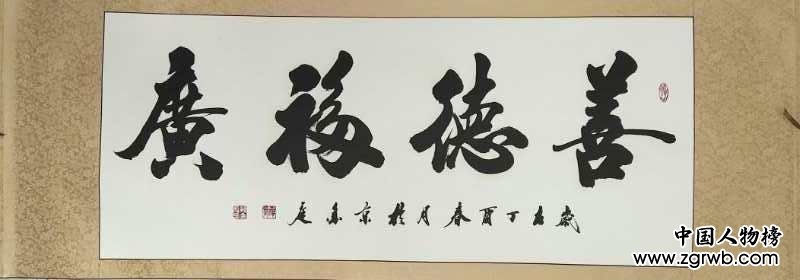 善德福廣
歲在丁酉春月於京
中国人物榜
www.zgrwb.com